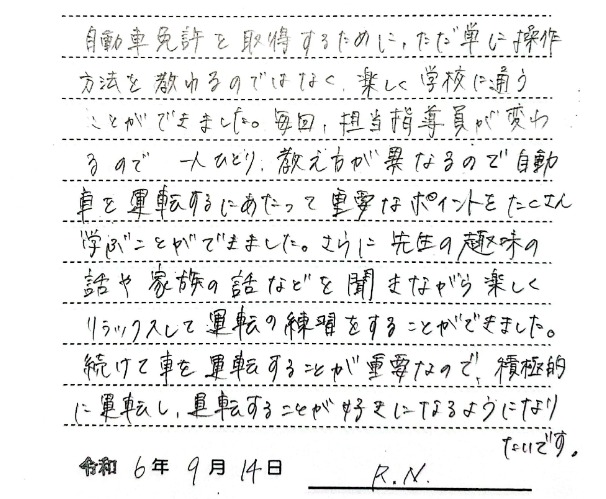 自動車免許を取得するために、ただ単に操作
方法を教わるのではなく、楽しく学校に通う
ことができました。毎回、担当指導員が変わ
るので 一人ひとり、教え方が異なるので自動
車を運転するにあたって重要なポイントをたくさん
学ぶことができました。さらに先生の趣味の
話や家族の話などを聞きながら楽しく
リラックスして運転の練習をすることができました。
続けて車を運転することが重要なので、積極的
に運転し、運転することが好きになるようになり
たいです。
令和 6年 9月 14日 R.N.